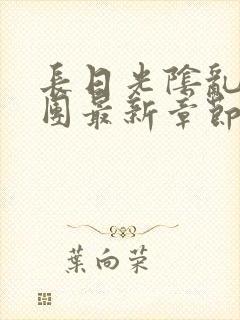 長日光陰亂
園最新章節
葉向榮